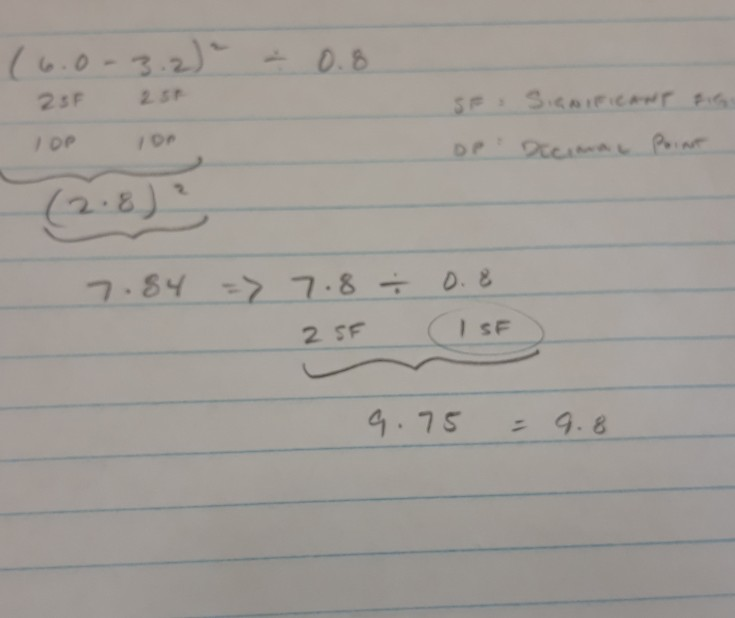 (6.0 - 3.2)² ÷ 0.8
2SF 2SF
1DP 1DP
SF: SIGNIFICANT
DP: DECIMAL POINT
(2.8)²
7.84 => 7.8 ÷ 0.8
2 SF 1 SF
9.75 = 9.8